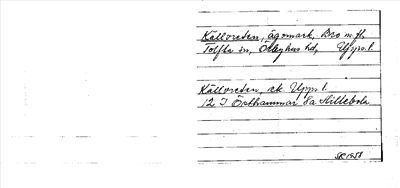 Källvreten, ägomark, Bro m.fl.
Tolfta sn, Örbyhus hd, Upps.l.
Källvreten, ek Upps. l.
12 I Östhammar 8a Hillebola
SR 1958